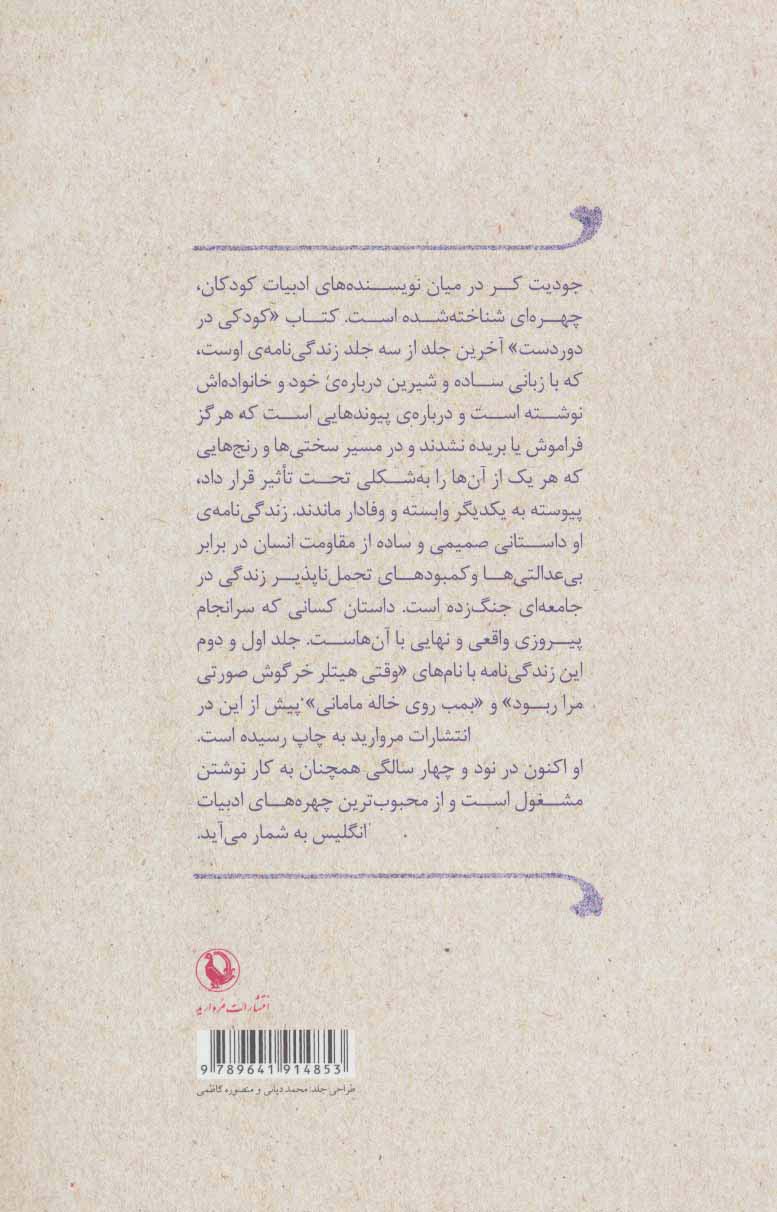 جودیت کر در میان نویسنده‌های ادبیات کودکان،
چهره‌ای شناخته‌شده است. کتاب «کودکی در
دوردست» آخرین جلد از سه جلد زندگی‌نامه‌ی اوست،
که با زبانی ساده و شیرین درباره‌ئ خود و خانواده‌اش
نوشته است و درباره‌ی پیوندهایی است که هرگز
فراموش یا بریده نشدند و در مسیر سختی‌ها و رنج‌هایی
که هر یک از آن‌ها را به‌شکلی تحت تأثیر قرار داد،
پیوسته به یکدیگر وابسته و وفادار ماندند. زندگی‌نامه‌ی
او داستانی صمیمی و ساده از مقاومت انسان در برابر
بی‌عدالتی‌ها وکمبودهای تحمل‌ناپذیر زندگی در
جامعه‌ای جنگ‌زده است. داستان کسانی که سرانجام
پیروزی واقعی و نهایی با آن‌هاست. جلد اول و دوم
این زندگی‌نامه با نام‌های «وقتی هیتلر خرگوش صورتی
مرا ربود» و «بمب روی خاله مامانی» پیش از این در
انتشارات مروارید به چاپ رسیده است.
او اکنون در نود و چهار سالگی همچنان به کار نوشتن
مشغول است و از محبوب‌ترین چهره‌های ادبیات
انگلیس به شمار می‌آید.
انتشارات مروارید
9 789641 914853
طراحی جلد: محمد دیانی و منصوره کاظمی